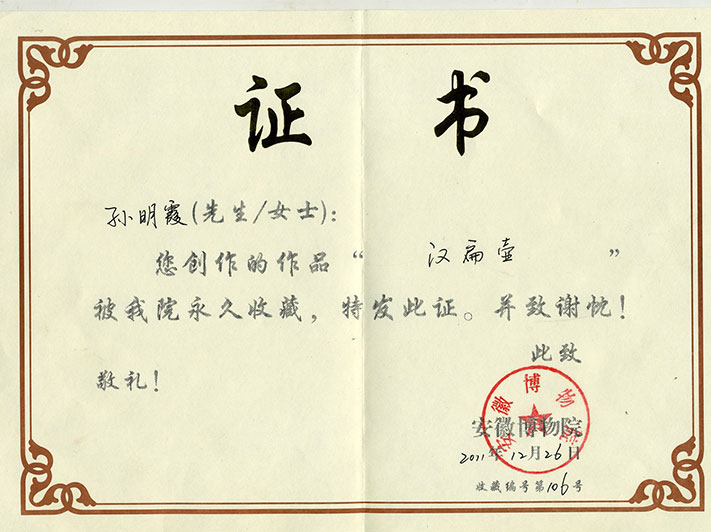 证书
孙明霞(先生/女士):
您创作的作品“汉扁壶”
被我院永久收藏,特发此证。并致谢忱!
此致
敬礼!
安徽博物院
2011年12月26日
收藏编号第106号